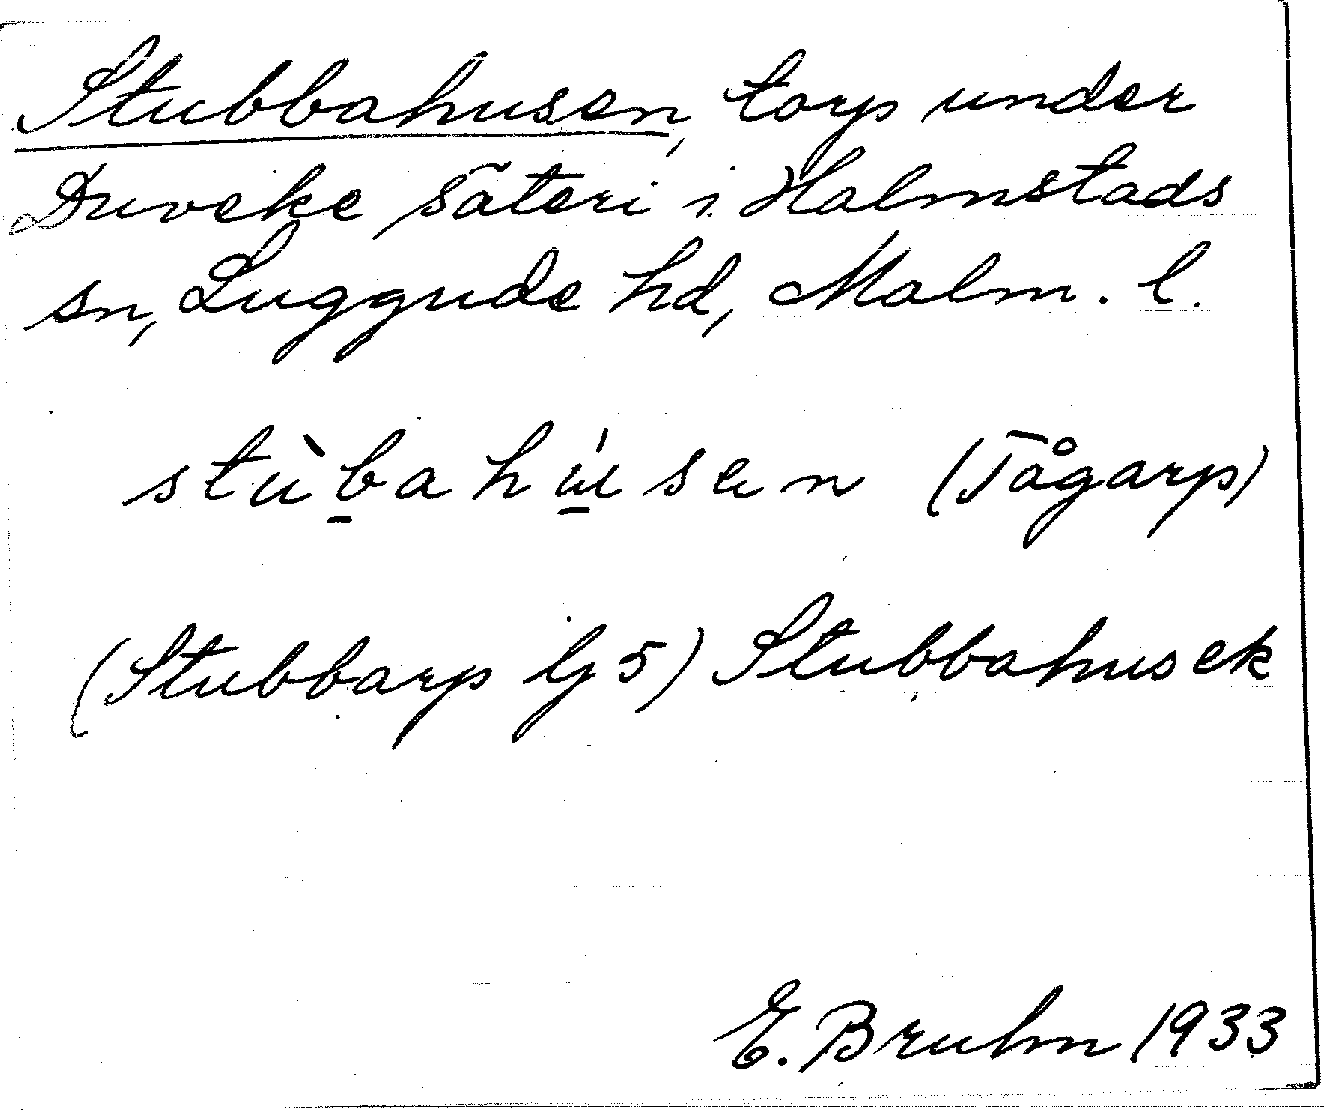 Stubbahusen, torp under
Duveke säteri i Halmstads
sn, Luggude hd, Malm. l.
stùbahúsen (Tågarp)
(Stubbarp lj 5) Stubbahus ek
E. Bruhn 1933